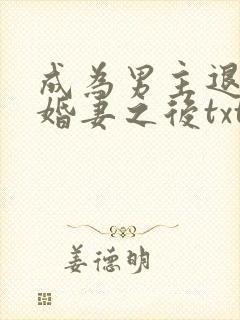 成為男主退
婚妻之後txt
姜德明